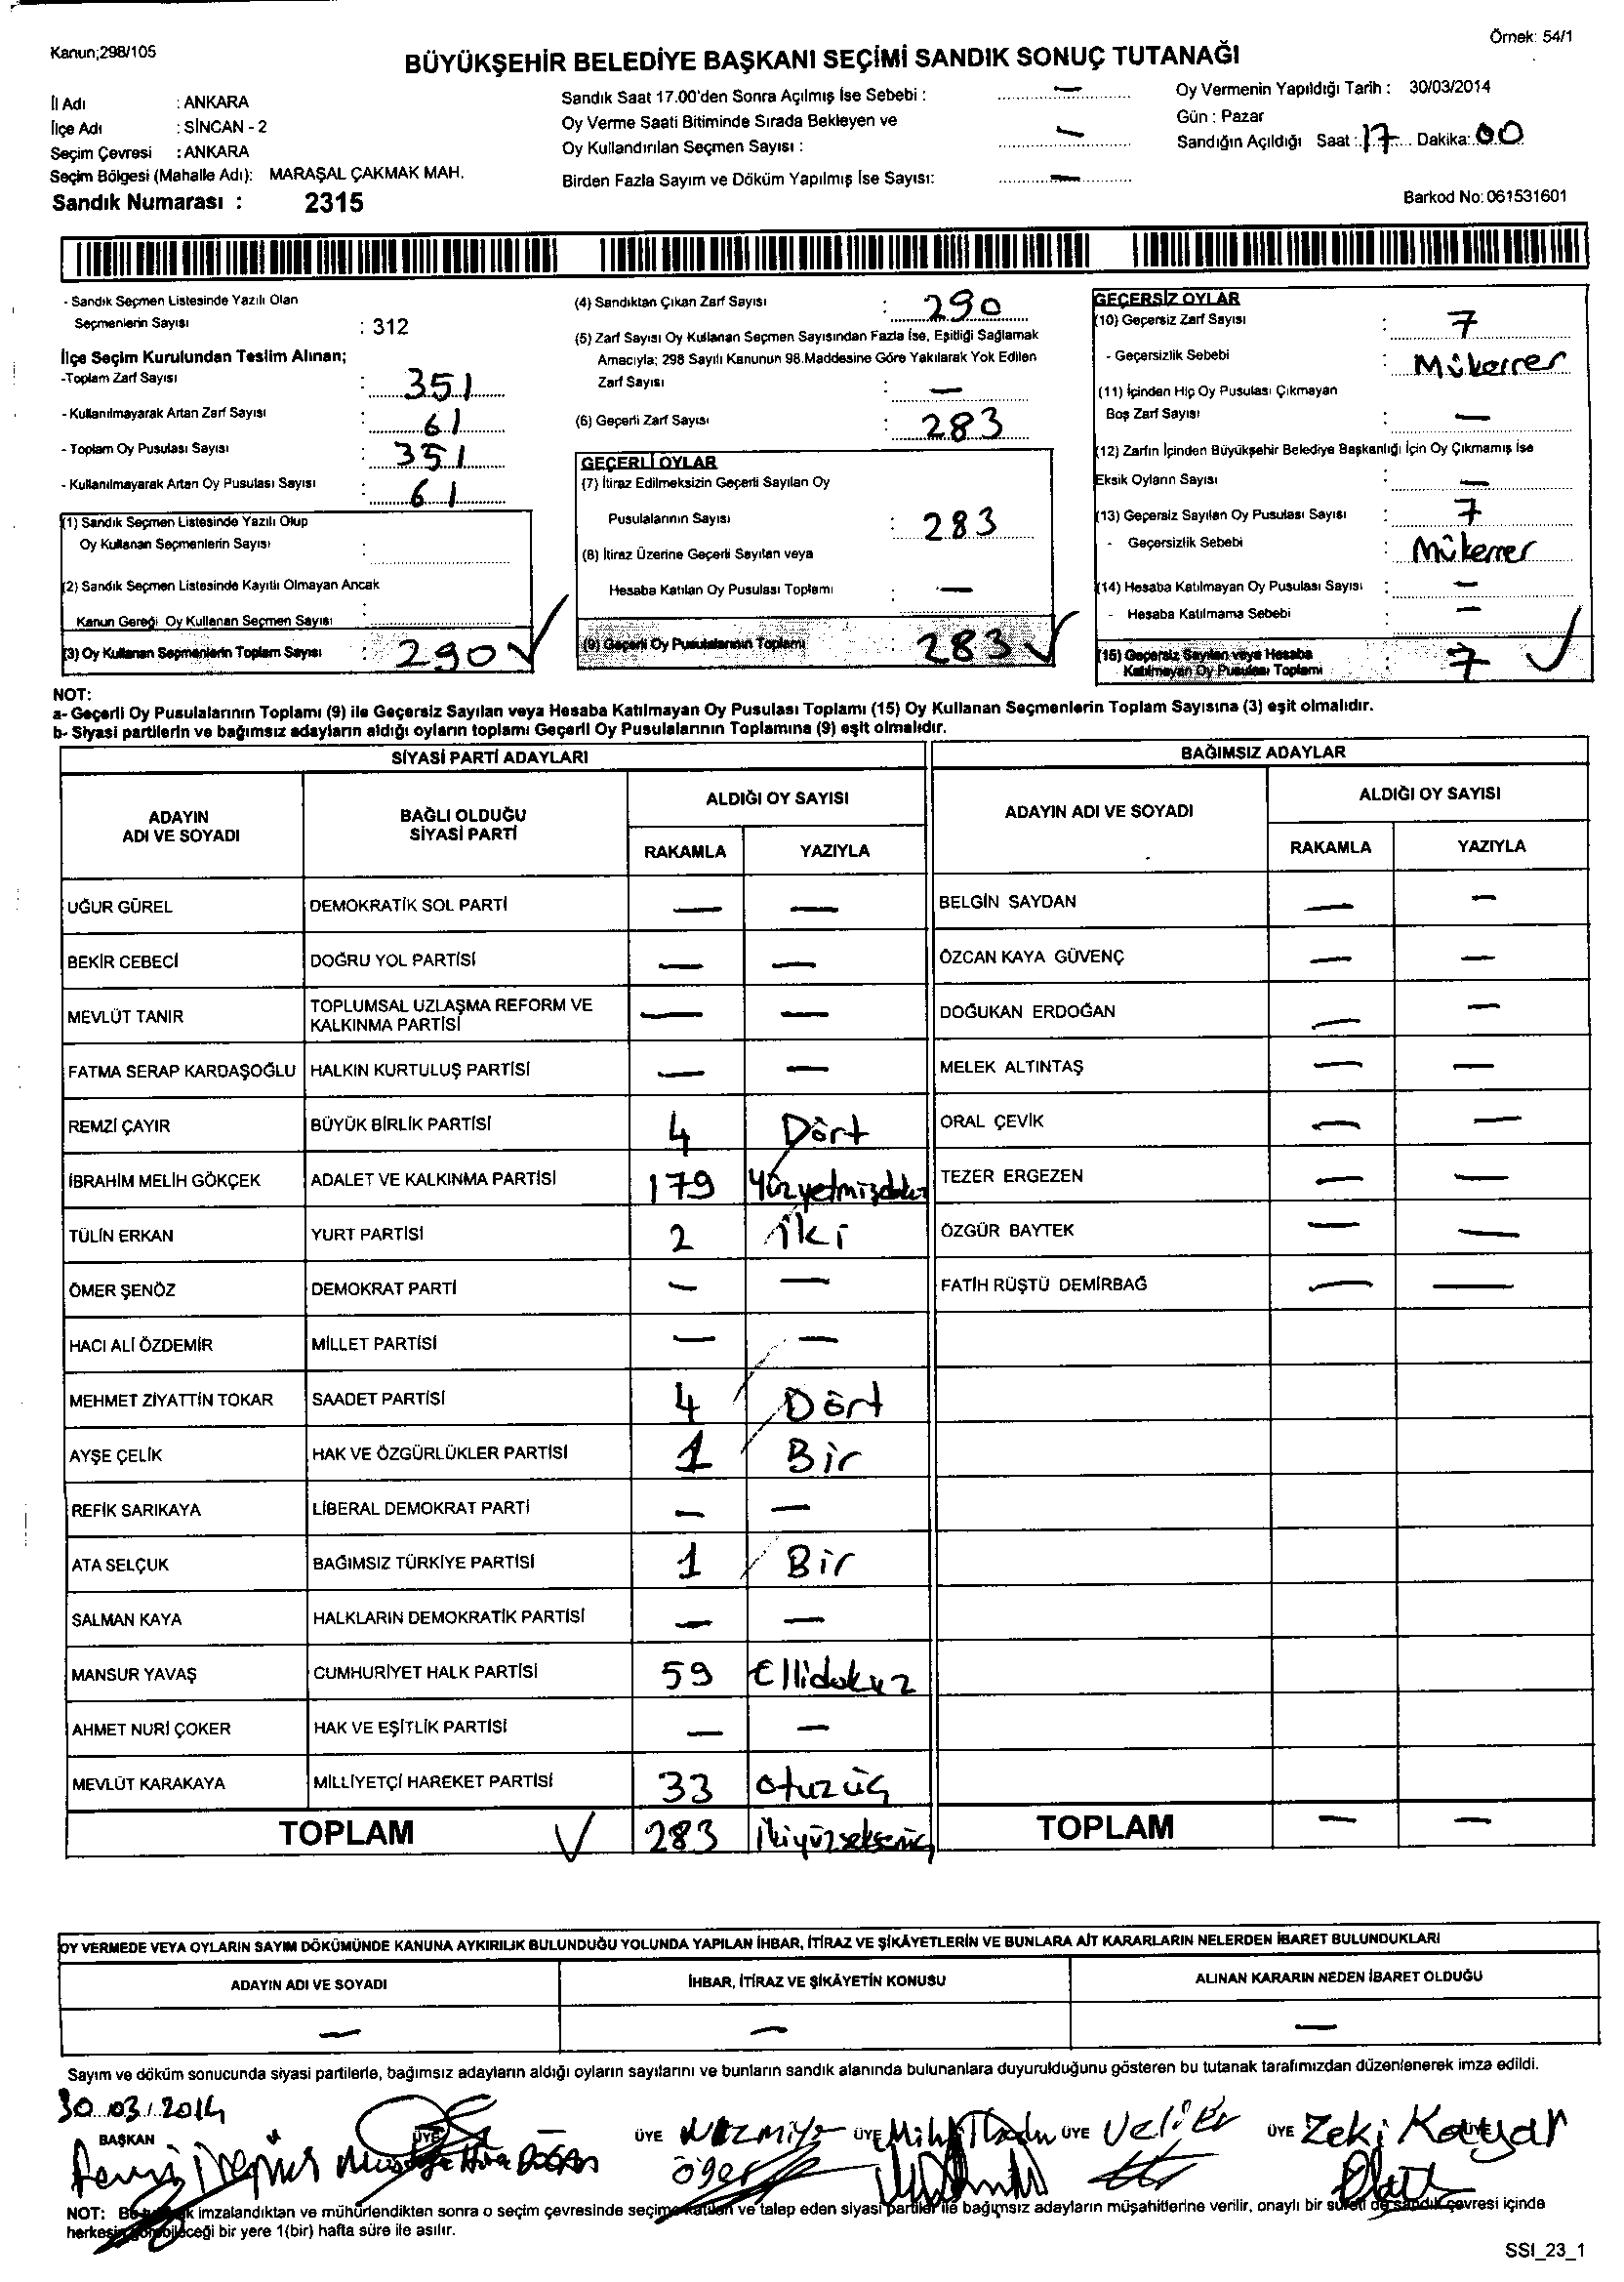 Kanun;298/105
Örnek: 54/1
BÜYÜKŞEHİR BELEDİYE BAŞKANI SEÇİMİ SANDIK SONUÇ TUTANAĞI
İl Adı : ANKARA
İlçe Adı : SİNCAN - 2
Seçim Çevresi : ANKARA
Seçim Bölgesi (Mahalle Adı): MARAŞAL ÇAKMAK MAH.
Sandık Numarası : 2315
Sandık Saat 17.00'den Sonra Açılmış İse Sebebi : —
Oy Verme Saati Bitiminde Sırada Bekleyen ve
Oy Kullandırılan Seçmen Sayısı : —
Birden Fazla Sayım ve Döküm Yapılmış İse Sayısı: —
Oy Vermenin Yapıldığı Tarih : 30/03/2014
Gün : Pazar
Sandığın Açıldığı Saat : 17 Dakika: 00
Barkod No: 061531601
- Sandık Seçmen Listesinde Yazılı Olan
Seçmenlerin Sayısı : 312
İlçe Seçim Kurulundan Teslim Alınan;
-Toplam Zarf Sayısı : 351
- Kullanılmayarak Artan Zarf Sayısı : 61
- Toplam Oy Pusulası Sayısı : 351
- Kullanılmayarak Artan Oy Pusulası Sayısı : 61
(1) Sandık Seçmen Listesinde Yazılı Olup
Oy Kullanan Seçmenlerin Sayısı :
(2) Sandık Seçmen Listesinde Kayıtlı Olmayan Ancak
Kanun Gereği Oy Kullanan Seçmen Sayısı :
(3) Oy Kullanan Seçmenlerin Toplam Sayısı : 290 ✓
(4) Sandıktan Çıkan Zarf Sayısı : 290
(5) Zarf Sayısı Oy Kullanan Seçmen Sayısından Fazla İse, Eşitliği Sağlamak
Amacıyla; 298 Sayılı Kanunun 98.Maddesine Göre Yakılarak Yok Edilen
Zarf Sayısı : —
(6) Geçerli Zarf Sayısı : 283
GEÇERLİ OYLAR
(7) İtiraz Edilmeksizin Geçerli Sayılan Oy
Pusulalarının Sayısı : 283
(8) İtiraz Üzerine Geçerli Sayılan veya
Hesaba Katılan Oy Pusulası Toplamı : —
(9) Geçerli Oy Pusulalarının Toplamı : 283 ✓
GEÇERSİZ OYLAR
(10) Geçersiz Zarf Sayısı : 7
- Geçersizlik Sebebi : Mükerrer
(11) İçinden Hiç Oy Pusulası Çıkmayan
Boş Zarf Sayısı : —
(12) Zarfın İçinden Büyükşehir Belediye Başkanlığı İçin Oy Çıkmamış İse
Eksik Oyların Sayısı : —
(13) Geçersiz Sayılan Oy Pusulası Sayısı : 7
- Geçersizlik Sebebi : Mükerrer
(14) Hesaba Katılmayan Oy Pusulası Sayısı : —
- Hesaba Katılmama Sebebi : —
(15) Geçersiz Sayılan veya Hesaba
Katılmayan Oy Pusulası Toplamı : 7 ✓
NOT:
a- Geçerli Oy Pusulalarının Toplamı (9) ile Geçersiz Sayılan veya Hesaba Katılmayan Oy Pusulası Toplamı (15) Oy Kullanan Seçmenlerin Toplam Sayısına (3) eşit olmalıdır.
b- Siyasi partilerin ve bağımsız adayların aldığı oyların toplamı Geçerli Oy Pusulalarının Toplamına (9) eşit olmalıdır.
SİYASİ PARTİ ADAYLARI
ADAYIN ADI VE SOYADI
BAĞLI OLDUĞU SİYASİ PARTİ
ALDIĞI OY SAYISI
RAKAMLA YAZIYLA
UĞUR GÜREL DEMOKRATİK SOL PARTİ — —
BEKİR CEBECİ DOĞRU YOL PARTİSİ — —
MEVLÜT TANIR TOPLUMSAL UZLAŞMA REFORM VE KALKINMA PARTİSİ — —
FATMA SERAP KARDAŞOĞLU HALKIN KURTULUŞ PARTİSİ — —
REMZİ ÇAYIR BÜYÜK BİRLİK PARTİSİ 4 Dört
İBRAHİM MELİH GÖKÇEK ADALET VE KALKINMA PARTİSİ 179 Yüzyetmişdokuz
TÜLİN ERKAN YURT PARTİSİ 2 iki
ÖMER ŞENÖZ DEMOKRAT PARTİ — —
HACI ALİ ÖZDEMİR MİLLET PARTİSİ — —
MEHMET ZİYATTİN TOKAR SAADET PARTİSİ 4 Dört
AYŞE ÇELİK HAK VE ÖZGÜRLÜKLER PARTİSİ 1 Bir
REFİK SARIKAYA LİBERAL DEMOKRAT PARTİ — —
ATA SELÇUK BAĞIMSIZ TÜRKİYE PARTİSİ 1 Bir
SALMAN KAYA HALKLARIN DEMOKRATİK PARTİSİ — —
MANSUR YAVAŞ CUMHURİYET HALK PARTİSİ 59 Ellidokuz
AHMET NURİ ÇOKER HAK VE EŞİTLİK PARTİSİ — —
MEVLÜT KARAKAYA MİLLİYETÇİ HAREKET PARTİSİ 33 otuzüç
TOPLAM ✓ 283 ikiyüzseksenüç
BAĞIMSIZ ADAYLAR
ADAYIN ADI VE SOYADI
ALDIĞI OY SAYISI
RAKAMLA YAZIYLA
BELGİN SAYDAN — —
ÖZCAN KAYA GÜVENÇ — —
DOĞUKAN ERDOĞAN — —
MELEK ALTINTAŞ — —
ORAL ÇEVİK — —
TEZER ERGEZEN — —
ÖZGÜR BAYTEK — —
FATİH RÜŞTÜ DEMİRBAĞ — —
TOPLAM — —
OY VERMEDE VEYA OYLARIN SAYIM DÖKÜMÜNDE KANUNA AYKIRILIK BULUNDUĞU YOLUNDA YAPILAN İHBAR, İTİRAZ VE ŞİKÂYETLERİN VE BUNLARA AİT KARARLARIN NELERDEN İBARET BULUNDUKLARI
ADAYIN ADI VE SOYADI İHBAR, İTİRAZ VE ŞİKÂYETİN KONUSU ALINAN KARARIN NEDEN İBARET OLDUĞU
— — —
Sayım ve döküm sonucunda siyasi partilerle, bağımsız adayların aldığı oyların sayılarını ve bunların sandık alanında bulunanlara duyurulduğunu gösteren bu tutanak tarafımızdan düzenlenerek imza edildi.
30.03.2014
BAŞKAN ÜYE ÜYE Nazmiye ÜYE ÜYE Veli Er ÜYE Zeki Kayar
NOT: imzalandıktan ve mühürlendikten sonra o seçim çevresinde seçime katılan ve talep eden siyasi partiler ile bağımsız adayların müşahitlerine verilir, onaylı bir sureti de sandık çevresi içinde
herkesin görebileceği bir yere 1(bir) hafta süre ile asılır.
SSI_23_1